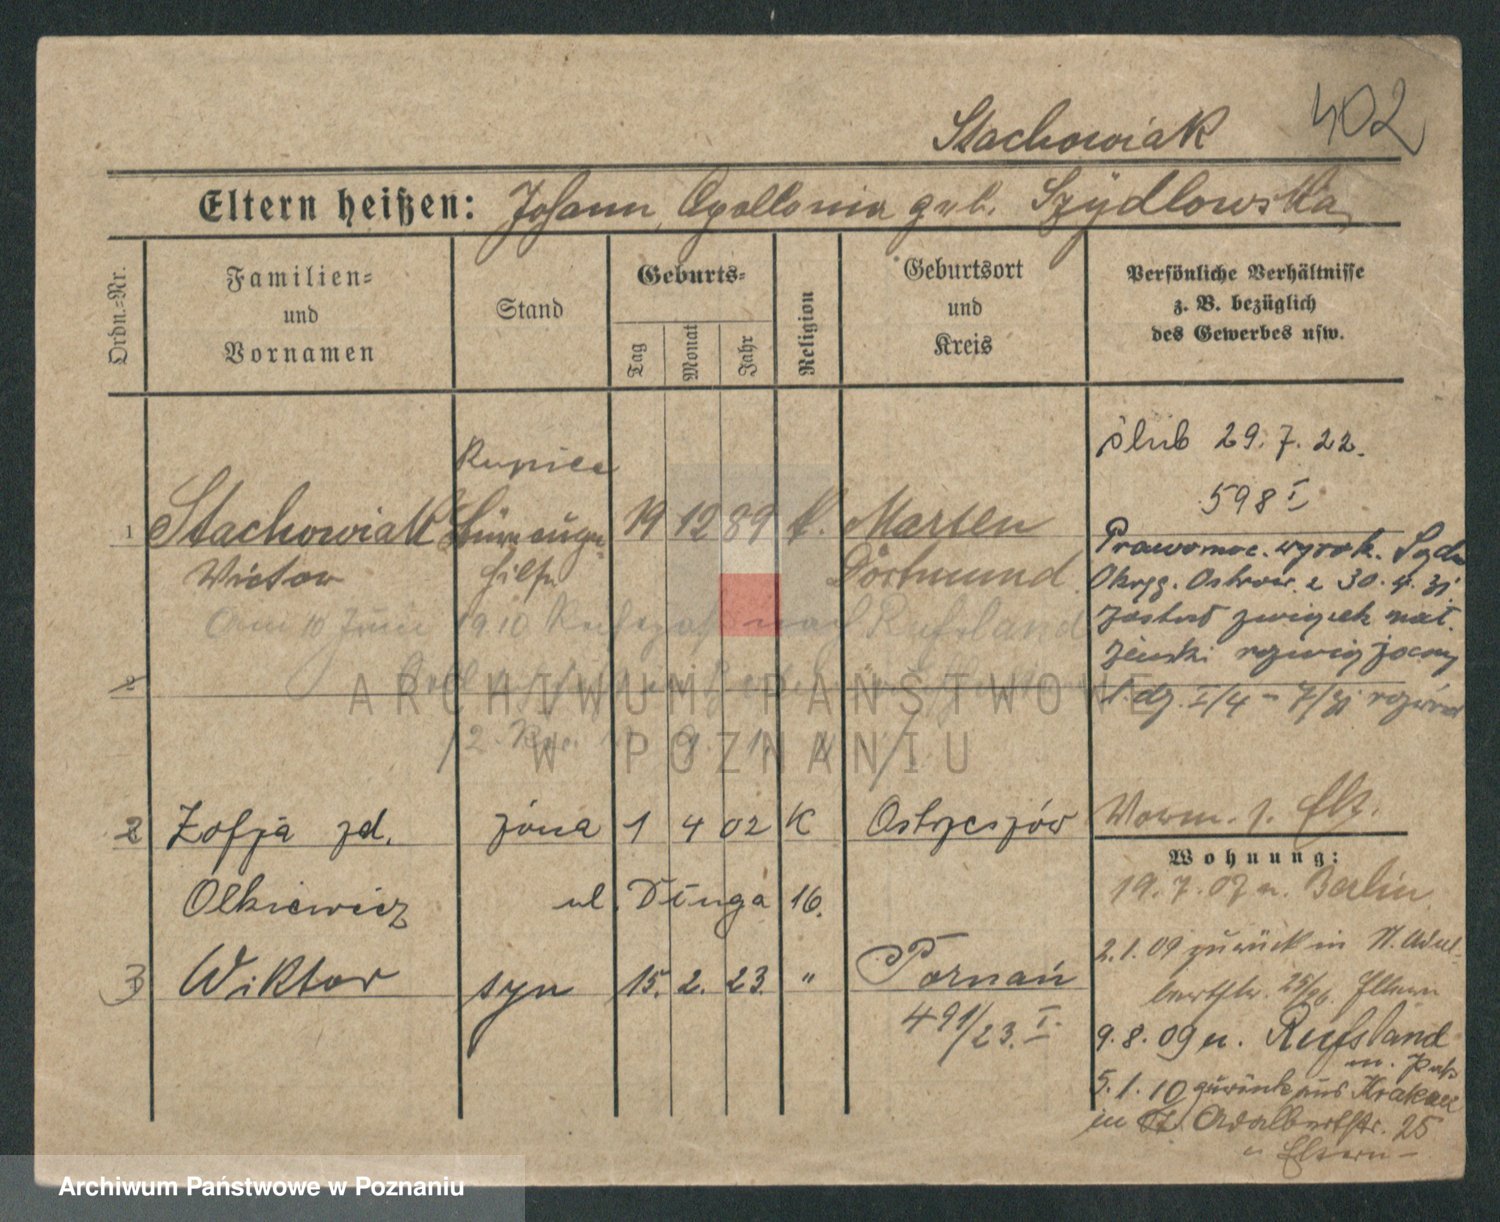 Stachowiak 402
Eltern heißen: Johann, Apollonia geb. Szydlowska
Ordn.=Nr.
Familien=
und
Vornamen
Stand
Geburts=
Tag
Monat
Jahr
Religion
Geburtsort
und
Kreis
Persönliche Verhältnisse
z. B. bezüglich
des Gewerbes usw.
ślub 29.7.22.
598 I
Kupiec
1 Stachowiak 19 12 89 k. Marten
Victor Dortmund
Am 10 Juni 1910 nach Russland
Prawomoc. wyrok. Sądu
Okręg. Ostrow. z 30.4.31
został związek mał.
żeński rozwiązany
2 Zofja zd. żona 1 4 02 K Ostrzeszów
Olkiewicz ul. Długa 16.
3 Wiktor syn 15. 2. 23. " Poznań
491/23. I.
Wohnung:
19.7.07 n. Berlin
2.1.09 zurück in
9.8.09 n. Russland
m. Pass
5.1.10 zurück aus Krakau
in St. Adalbertstr. 25
Eltern
ARCHIWUM PAŃSTWOWE
W POZNANIU
Archiwum Państwowe w Poznaniu